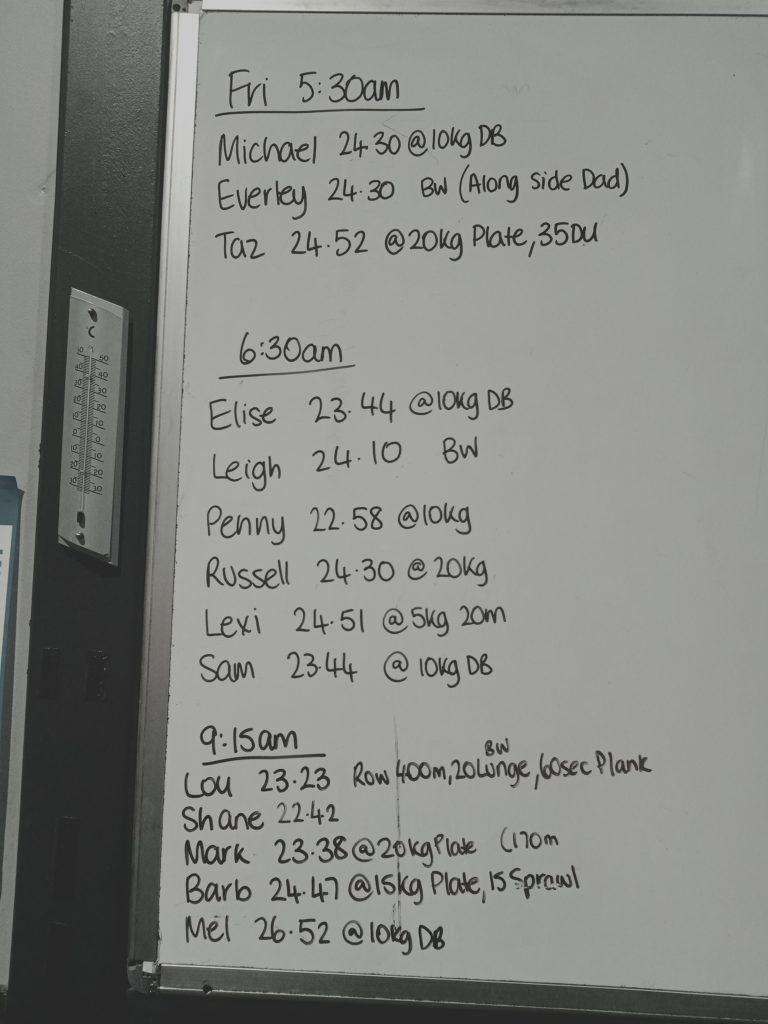 Fri 5:30am
Michael 24 30 @10kg DB
Everley 24.30 BW (Along Side Dad)
Taz 24.52 @20kg Plate, 35DU
6:30am
Elise 23.44 @10kg DB
Leigh 24.10 BW
Penny 22.58 @10kg
Russell 24.30 @ 20kg
Lexi 24.51 @5kg 20m
Sam 23.44 @ 10kg DB
9:15am
BW
Lou 23.23 Row 400m, 20Lunge, 60sec Plank
Shane 22.42
Mark 23.38@20kgPlate (170m
Barb 24.47 @15kg Plate, 15 Sprawl
Mel 26.52 @10kg DB
°C